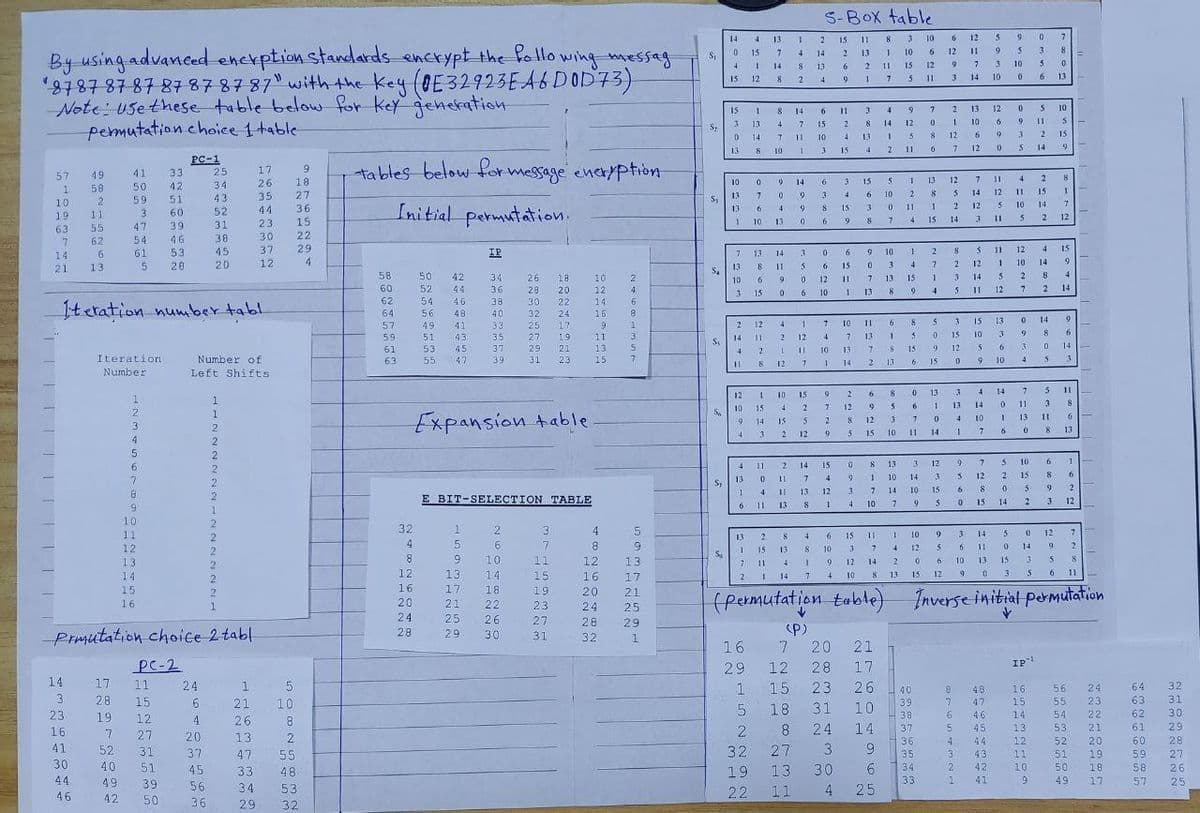 By using advanced encrption standards encrypt the following messag
"8787 87 87 87 87 87 87" with the Key (0E32923EA6D0D73)
Note: use these table below for key generation
permutation choice 1 table
PC-1
57 49 41 33 25 17 9
1 58 50 42 34 26 18
10 2 59 51 43 35 27
19 11 3 60 52 44 36
63 55 47 39 31 23 15
7 62 54 46 38 30 22
14 6 61 53 45 37 29
21 13 5 28 20 12 4
Iteration number tabl
Iteration Number of
Number Left Shifts
1 1
2 1
3 2
4 2
5 2
6 2
7 2
8 2
9 1
10 2
11 2
12 2
13 2
14 2
15 2
16 1
Prmutation choice 2 tabl
PC-2
14 17 11 24 1 5
3 28 15 6 21 10
23 19 12 4 26 8
16 7 27 20 13 2
41 52 31 37 47 55
30 40 51 45 33 48
44 49 39 56 34 53
46 42 50 36 29 32
tables below for message encryption
Initial permutation.
IP
58 50 42 34 26 18 10 2
60 52 44 36 28 20 12 4
62 54 46 38 30 22 14 6
64 56 48 40 32 24 16 8
57 49 41 33 25 17 9 1
59 51 43 35 27 19 11 3
61 53 45 37 29 21 13 5
63 55 47 39 31 23 15 7
Expansion table
E BIT-SELECTION TABLE
32 1 2 3 4 5
4 5 6 7 8 9
8 9 10 11 12 13
12 13 14 15 16 17
16 17 18 19 20 21
20 21 22 23 24 25
24 25 26 27 28 29
28 29 30 31 32 1
S-Box table
S1
14 4 13 1 2 15 11 8 3 10 6 12 5 9 0 7
0 15 7 4 14 2 13 1 10 6 12 11 9 5 3 8
4 1 14 8 13 6 2 11 15 12 9 7 3 10 5 0
15 12 8 2 4 9 1 7 5 11 3 14 10 0 6 13
S2
15 1 8 14 6 11 3 4 9 7 2 13 12 0 5 10
3 13 4 7 15 2 8 14 12 0 1 10 6 9 11 5
0 14 7 11 10 4 13 1 5 8 12 6 9 3 2 15
13 8 10 1 3 15 4 2 11 6 7 12 0 5 14 9
S3
10 0 9 14 6 3 15 5 1 13 12 7 11 4 2 8
13 7 0 9 3 4 6 10 2 8 5 14 12 11 15 1
13 6 4 9 8 15 3 0 11 1 2 12 5 10 14 7
1 10 13 0 6 9 8 7 4 15 14 3 11 5 2 12
S4
7 13 14 3 0 6 9 10 1 2 8 5 11 12 4 15
13 8 11 5 6 15 0 3 4 7 2 12 1 10 14 9
10 6 9 0 12 11 7 13 15 1 3 14 5 2 8 4
3 15 0 6 10 1 13 8 9 4 5 11 12 7 2 14
S5
2 12 4 1 7 10 11 6 8 5 3 15 13 0 14 9
14 11 2 12 4 7 13 1 5 0 15 10 3 9 8 6
4 2 1 11 10 13 7 8 15 9 12 5 6 3 0 14
11 8 12 7 1 14 2 13 6 15 0 9 10 4 5 3
S6
12 1 10 15 9 2 6 8 0 13 3 4 14 7 5 11
10 15 4 2 7 12 9 5 6 1 13 14 0 11 3 8
9 14 15 5 2 8 12 3 7 0 4 10 1 13 11 6
4 3 2 12 9 5 15 10 11 14 1 7 6 0 8 13
S7
4 11 2 14 15 0 8 13 3 12 9 7 5 10 6 1
13 0 11 7 4 9 1 10 14 3 5 12 2 15 8 6
1 4 11 13 12 3 7 14 10 15 6 8 0 5 9 2
6 11 13 8 1 4 10 7 9 5 0 15 14 2 3 12
S8
13 2 8 4 6 15 11 1 10 9 3 14 5 0 12 7
1 15 13 8 10 3 7 4 12 5 6 11 0 14 9 2
7 11 4 1 9 12 14 2 0 6 10 13 15 3 5 8
2 1 14 7 4 10 8 13 15 12 9 0 3 5 6 11
(permutation table)
(P)
16 7 20 21
29 12 28 17
1 15 23 26
5 18 31 10
2 8 24 14
32 27 3 9
19 13 30 6
22 11 4 25
Inverse initial permutation
IP-1
40 8 48 16 56 24 64 32
39 7 47 15 55 23 63 31
38 6 46 14 54 22 62 30
37 5 45 13 53 21 61 29
36 4 44 12 52 20 60 28
35 3 43 11 51 19 59 27
34 2 42 10 50 18 58 26
33 1 41 9 49 17 57 25